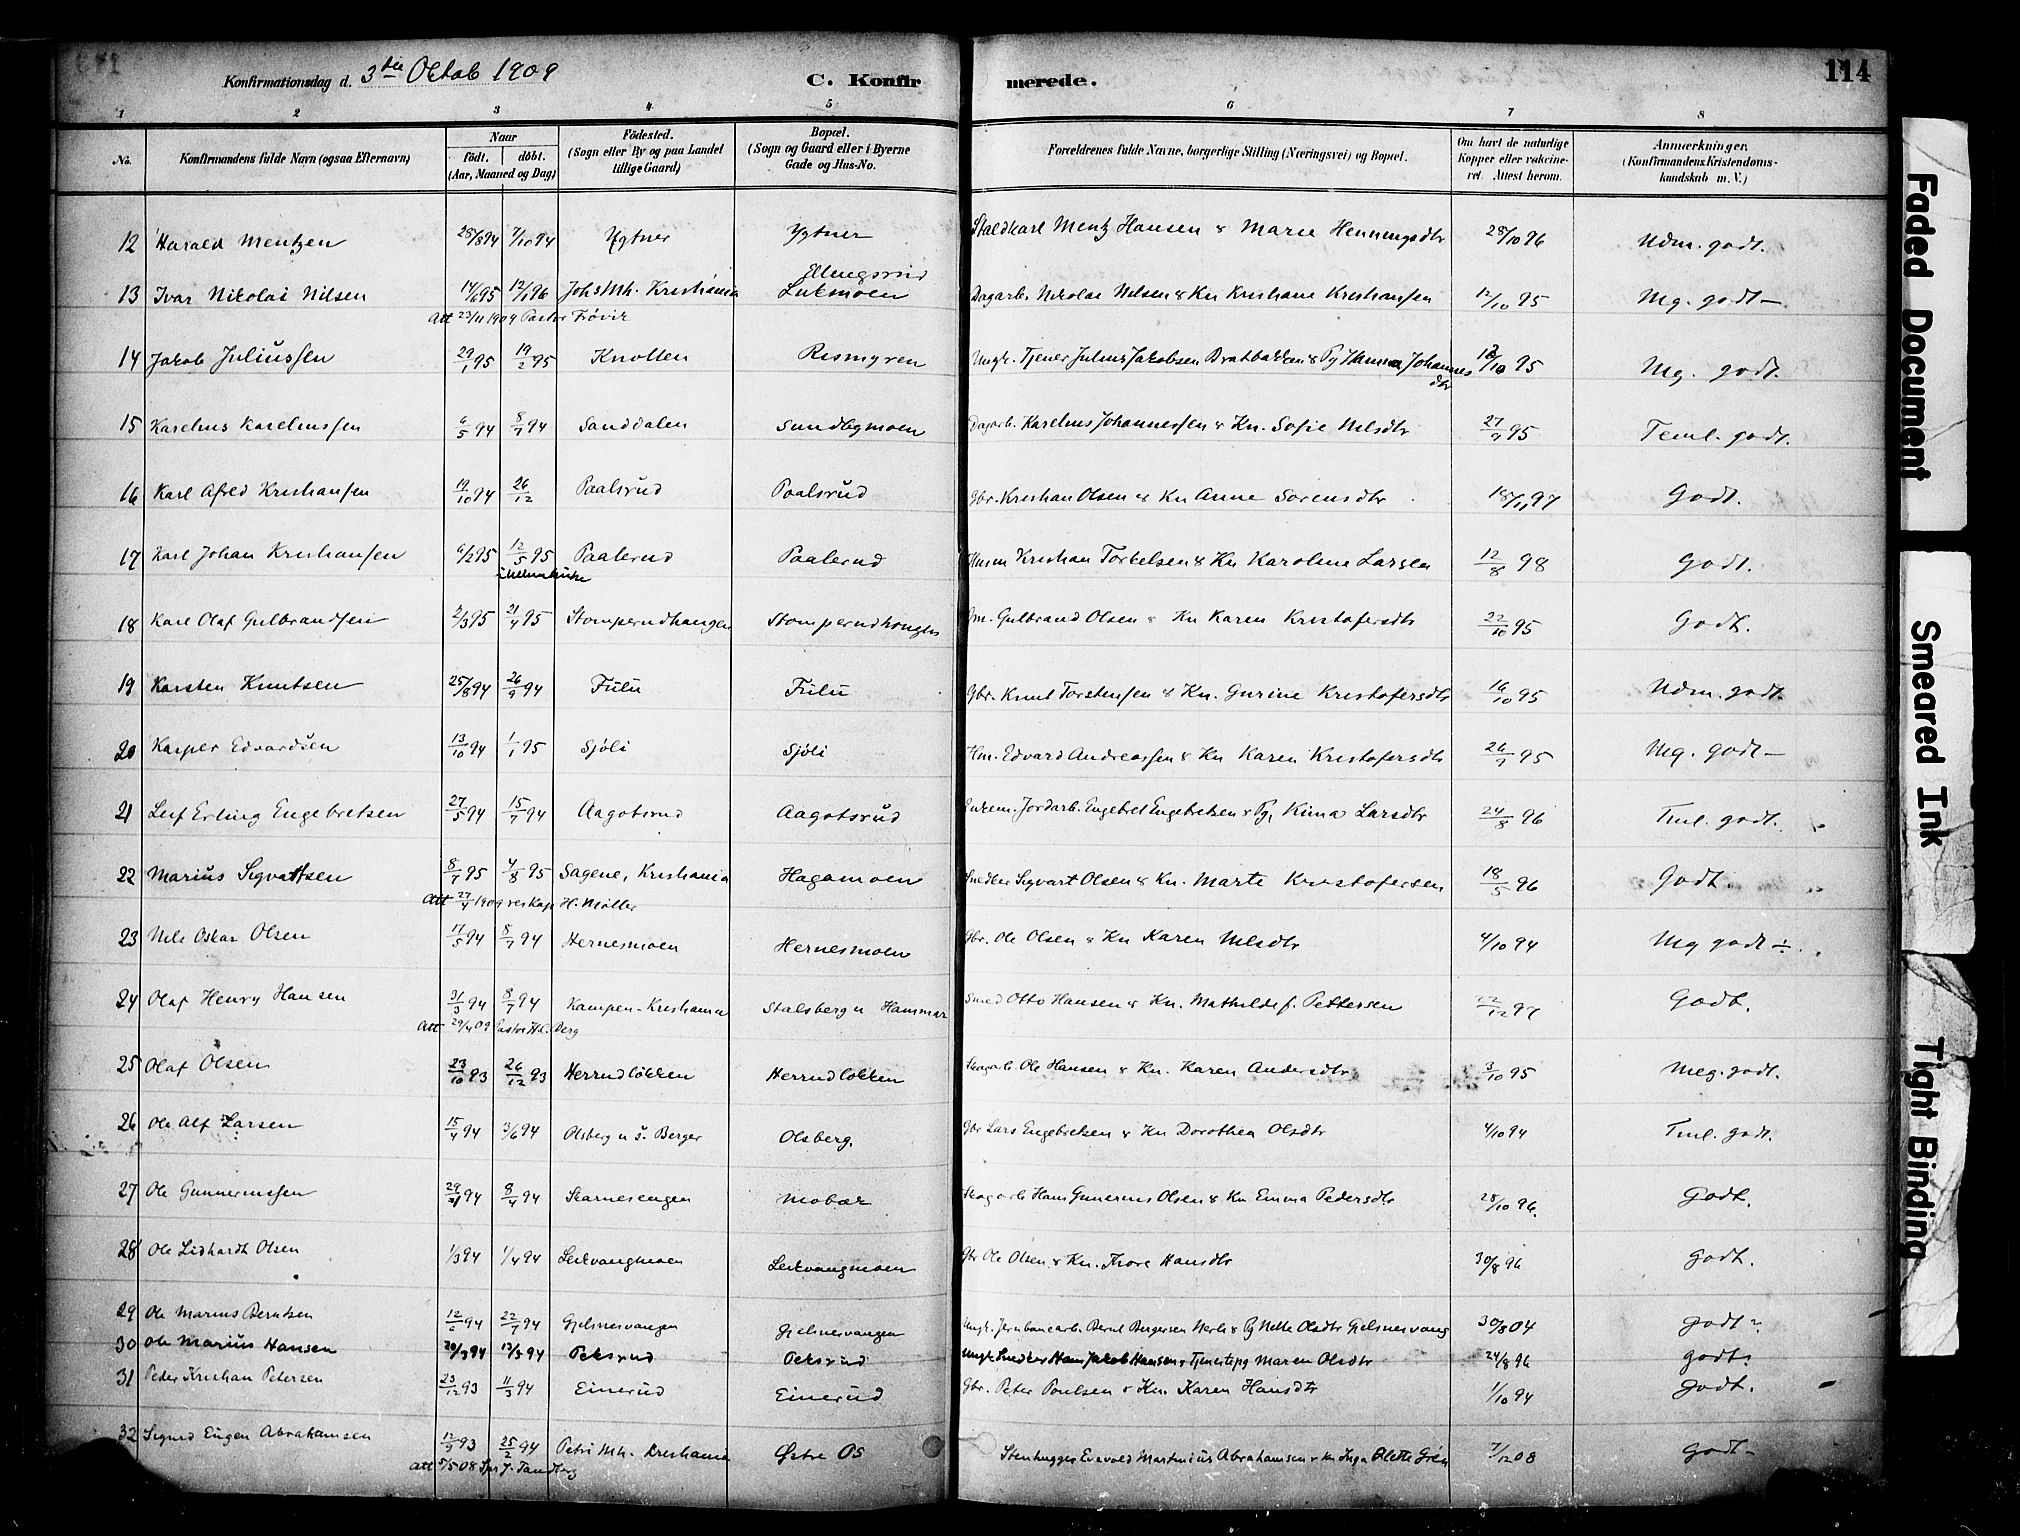 Konfirmationsdag d. 3die Oktob 1909
C. Konfirmerede.
114
1 2 3 4 5 6 7 8
No. Konfirmandens fulde Navn (ogsaa Efternavn) Naar födt. döbt. (Aar, Maaned og Dag) Födested. (Sogn eller By og paa Landet tillige Gaard) Bopæl. (Sogn og Gaard eller i Byerne Gade og Hus-No. Forældrenes fulde Navne, borgerlige Stilling (Næringsvei) og Bopæl. Om havt de naturlige Kopper eller vakcineret. Attest herom. Anmærkninger. (Konfirmandens Kristendomskundskab m. V.)
12 Harald Mentzen 28/8 94 7/10 94 Ygtner Ygtner Staldkarl Mentz Hansen & Marie Henningsdtr 28/10 96 Udm. godt.
13 Ivar Nikolai Nilsen 14/6 95 12/1 96 Johs Mh. Kristiania Ellingsrud Lukmoen Dagarb. Nikolai Nilsen & Kn Kristiane Kristiansen 12/10 95 Mg. godt –
Att 23/11 1904 Pastor Frövir
14 Jakob Juliussen 29/1 95 19/2 95 Knollen Rismyren Ungk. Tjener Julius Jakobsen Bratbakken & Pg Hanna Johannesdtr 95 Mg. godt.
15 Karelius Kareliussen 6/5 94 8/7 94 Sanddalen Sundbymoen Dagarb. Karelius Johannessen & Kn. Sofie Nilsdtr 27/9 95 Teml. godt.
16 Karl Afred Kristiansen 19/10 94 26/12 Paalsrud Paalsrud Gbr. Kristian Olsen & Kn Anne Sörensdtr 18/11 97 Godt.
17 Karl Johan Kristiansen 6/2 95 12/5 95 Paalerud Paalerud Husm Kristian Torkelsen & Kn Karoline Larsen 12/8 98 Godt.
18 Karl Olaf Gulbrandsen 2/3 95 21/4 95 Stomperudhaugen Stomperudhaugen Hm. Gulbrand Olsen & Kn Karen Kristofersdtr 22/10 95 Godt.
19 Karsten Knutsen 25/8 94 26/9 94 Fulu Fulu Gbr. Knut Torstensen & Kn. Gurine Kristofersdtr 16/10 95 Udm. godt.
20 Kasper Edvardsen 13/10 94 1/1 95 Sjöli Sjöli Hm. Edvard Andreassen & Kn Karen Kristofersdtr 26/7 95 Mg. godt –
21 Leif Erling Engebretsen 27/5 94 15/7 94 Aagotsrud Aagotsrud Enkem. Jordarb. Engebret Engebretsen & Pg. Kima Larsdtr 24/8 96 Tml. godt.
22 Marius Sigvartsen 8/7 95 4/8 95 Sagene, Kristiania Hagamoen Snedker Sigvart Olsen & Kn. Marte Kristofersen 18/5 96 Godt.
Att 27/4 1909 reskap H. Möller
23 Nils Oskar Olsen 17/5 94 8/7 94 Hernesmoen Hernesmoen Gbr. Ole Olsen & Kn Karen Nilsdtr 4/10 94 Mg godt ÷
24 Olaf Henry Hansen 31/3 94 8/7 94 Kampen - Kristiania Stalsberg u Hammar Smed Otto Hansen & Kn. Mathilde f. Pettersen 22/12 97 Godt.
Att 29/4 09 Pastor Hl. Berg
25 Olaf Olsen 23/10 93 26/12 93 Herrudlökken Herrudlokken Skogarb. Ole Hansen & Kn. Karen Andersdtr 3/10 95 Meg. godt.
26 Ole Alf Larsen 15/4 94 3/6 94 Olsberg u s. Berger Olsberg. Gbr Lars Engebretsen & Kn Dorothea Olsdtr 4/10 94 Tml. godt.
27 Ole Gunneriussen 29/1 94 8/4 94 Skarnesengen Mobæk Skogarb Hans Gunnerius Olsen & Kn Emma Pedersdtr 28/10 96. Godt.
28 Ole Lidhardt Olsen 1/3 94 1/4 94 Leirvangmoen Leirvangmoen Gbr Ole Olsen & Kn. Thore Hansdtr 30/8 96 Godt.
29 Ole Marius Berntsen 12/6 94 22/7 94 Gjelsnesvangen Gjelsnesvangen Ungk. Jernbanearb. Bernt Bergersen & Pg Nette Olsdtr Gjelsnesvang 30/8 04 Godt?
30 Ole Marius Hansen 20/3 94 13/5 94 Peksrud Peksrud Ungk Snedker Hans Jakob Hansen & Tjenestepg Maren Olsdtr 24/8 96 godt.
31 Peder Kristian Petersen 23/12 93 11/3 94 Einerud Einerud Gbr. Peter Poulsen & Kn Karen Hansdtr 1/10 94 Godt.
32 Sigurd Eugen Abrahamsen 12/9 93 25/2 94 Petri Mh. Kristiania Østre Os Stenhugger Martinius Abrahamsen & Kn Inga Olette 7/12 08 Godt –
Att 5/5 08 J. Tandberg
Faded Document
Smeared Ink
Tight Binding